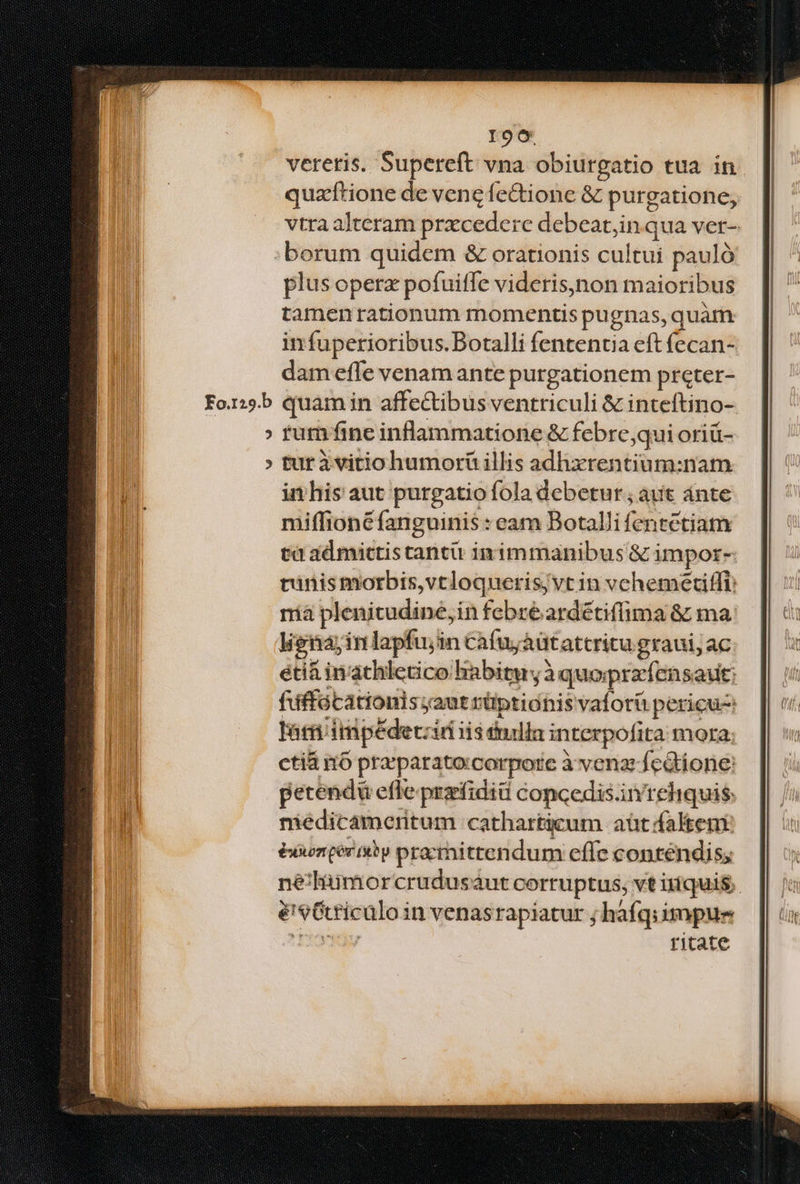 190
vereris. Supereſt vna obiurgatio tua in
quæſtione de venę ſectione & purgatione,
vtra alteram præcedere debeat, in qua ver-
borum quidem & orationis cultui paulò
plus operæ poſuiſſe videris, non maioribus
tamen rationum momentis pugnas, quàm
in ſuperioribus. Botalli ſententia eſt ſecan-
dam eſſe venam ante purgationem pręter-
Fo.129.b quam in affectibus ventriculi & inteſtino-
» rum ſine inflammatione & febre, qui oriũ-
» tur à vitio humorũ illis adhærentium: nam
in his aut purgatio ſola debetur, aut ante
miſſionẽ ſanguinis: eam Botalli ſentẽtiam
tu admittis tantũ in immanibus & impor-
tunis morbis, vt loqueris, vt in vehemẽtiſſi-
ma plenitudine, in febre ardẽtiſſima & ma
ligna, in lapſu, in caſu, aut attritu graui, ac
etiã in athletico habitu, à quo præſens aut
ſuffocationis, aut ruptionis vaſorũ pericu-
lum impẽdet: in iis nulla interpoſita mora,
etiã nõ præparato corpore à venæ ſectione
petendũ eſſe præſidiũ concedis. in reliquis
medicamentum catharticum aut ſaltem
præmittendum eſſe contendis,
ne humor crudus aut corruptus, vt inquis,
è vẽtriculo in venas rapiatur, háſq; impu-
ritate